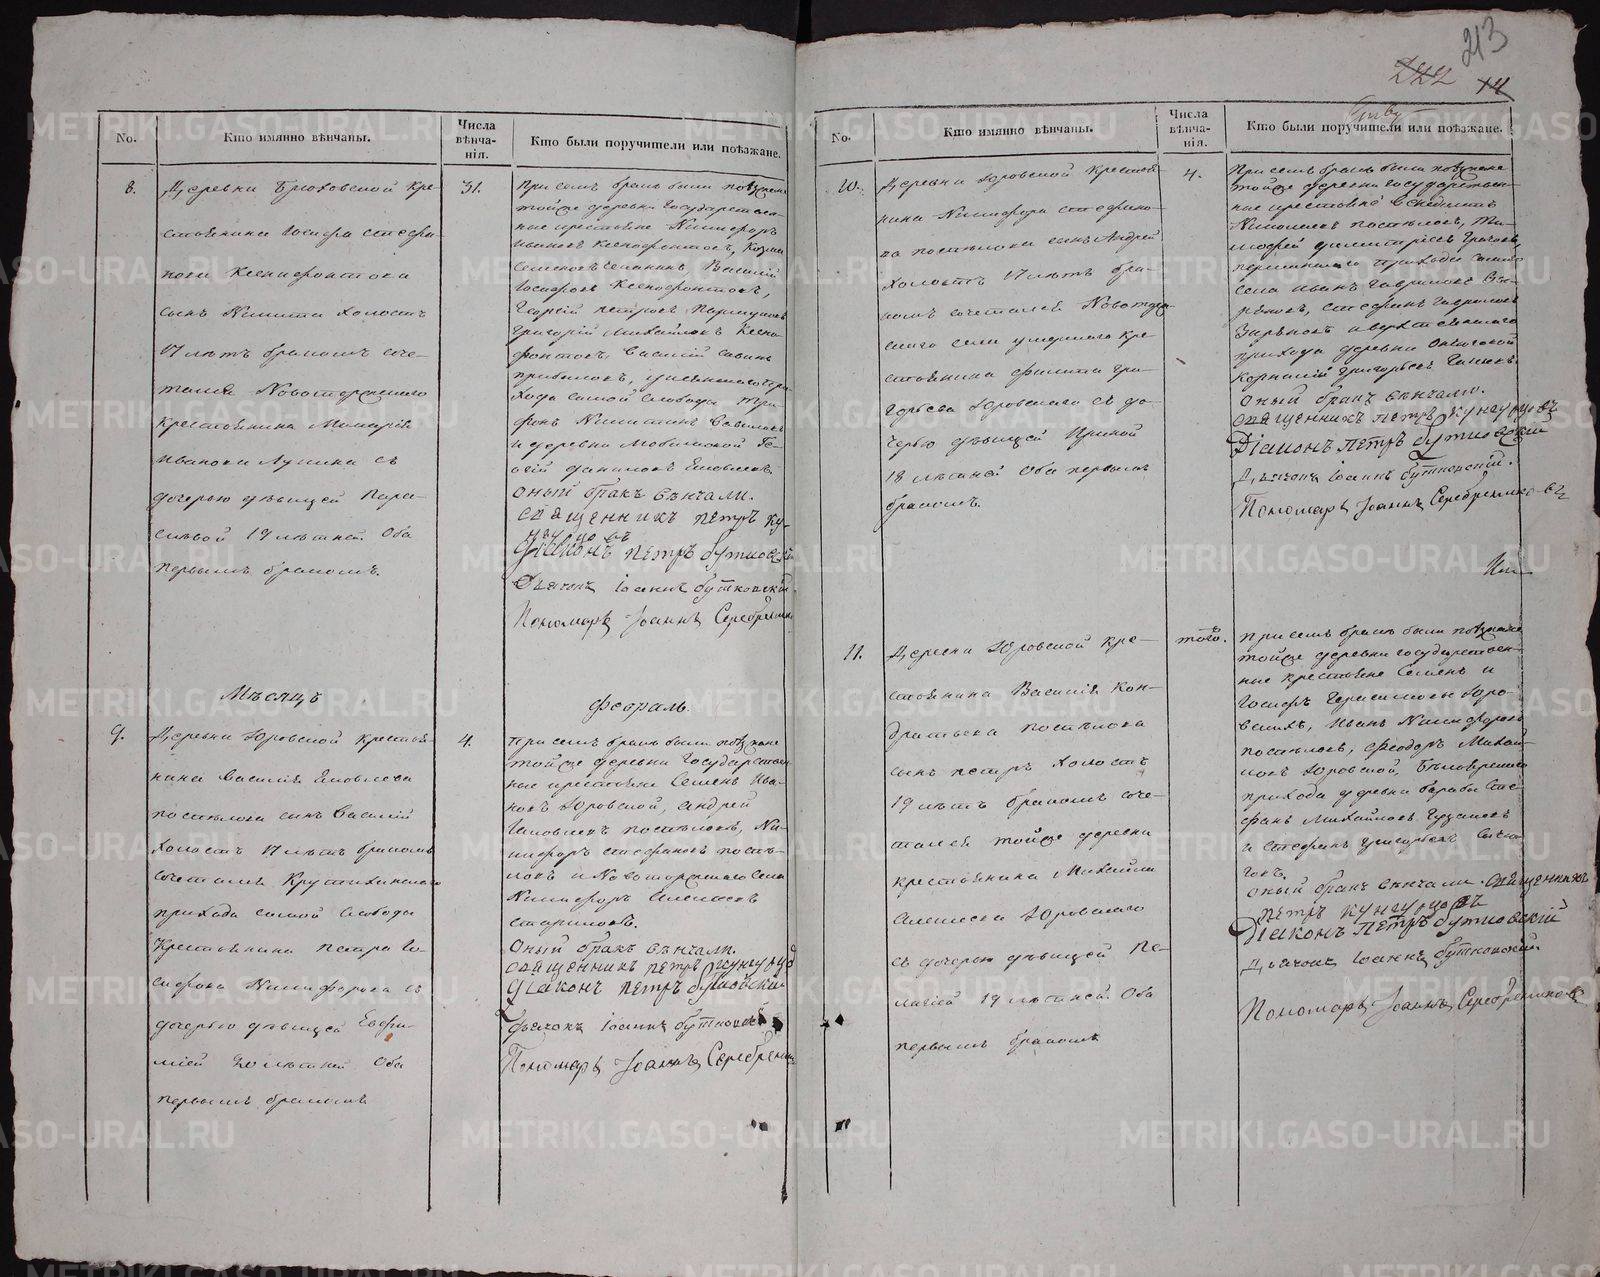 213
222
14
No.
Кто имянно вѣнчаны.
Числа вѣнча-нія.
Кто были поручители или поѣзжане.
8.
Деревни Брюховской кре-
стьянина Іосифа Стефа-
нова Ксенофонтова
сынъ Никита холостъ
17 лѣтъ бракомъ соче-
тался Новоторжскаго
крестьянина Макарія
Иванова Лукина съ
дочерью дѣвицей Пара-
сковой 19 лѣтней Оба
первымъ бракомъ.
31.
При семъ бракѣ были поѣзжане
тойже деревни государствен-
ные крестьяне Никифоръ
Ивановъ Ксенофонтовъ, Козма
Василій
Іосифовъ Ксенофонтовъ,
Георгій Петровъ
Григорій Михайловъ Ксено-
фонтовъ, Василій Савинъ
прихода самой слободы
и деревни
Даниловъ
Оный бракъ вѣнчали.
Священникъ Петръ Ку-
нгурцовъ
Діаконъ Петръ Бутковскій
Дьячокъ Іоаннъ Бутковскій.
Пономарь Іоаннъ Серебренни
Мѣсяцъ
Февраль.
9.
Деревни Юровской крестья-
нина Василія Яковлева
Постѣлова сынъ Василій
холостъ 17 лѣтъ бракомъ
сочетался Крутихинскаго
прихода самой слободы
крестьянина Петра Іо-
сифова Никифорова съ
дочерью дѣвицей Евфи-
міей 20 лѣтней Оба
первымъ бракомъ
4.
При семъ бракѣ были поѣзжане
тойже деревни государствен-
ные крестьяне Семенъ Ива-
новъ Юровской, Андрей
Яковлевъ Постѣловъ, Ни-
кифоръ Стефановъ Постѣ-
ловъ и Новоторжскаго села
Никифоръ Алексѣевъ
Стариковъ.
Оный бракъ вѣнчали.
Священникъ Петръ Кунгурцо
Діаконъ Петръ Бутковскій
Дьячокъ Іоаннъ Бутковскій
Пономарь Іоаннъ Серебренни
No.
Кто имянно вѣнчаны.
Числа вѣнча-нія.
Кто были поручители или поѣзжане.
10.
Деревни Юровской крестья-
нина Никифора Стефано-
ва Постѣлова сынъ Андрей
холостъ 17 лѣтъ бра-
комъ сочетался Новоторж-
скаго села умершаго кре-
стьянина Филипа Гри-
горьева Юровскаго съ до-
черью дѣвицей Ириной
18 лѣтней Оба первымъ
бракомъ.
4.
При семъ бракѣ были поѣзжане
тойже деревни государствен-
ные крестьяне Венедиктъ
Постѣловъ, Ти-
мофей Димитріевъ
прихода самаго
села Иванъ Гавриловъ
Стефанъ Гавриловъ
прихода деревни
Корнилій Григорьевъ
Оный бракъ вѣнчали.
Священникъ Петръ Кунгурцовъ
Діаконъ Петръ Бутковскій
Дьячокъ Іоаннъ Бутковскій.
Пономарь Іоаннъ Серебренниковъ
11.
Деревни Юровской кре-
стьянина Василія Кон-
дратьева Постѣлова
сынъ Петръ холостъ
19 лѣтъ бракомъ соче-
тался тойже деревни
крестьянина Михайла
Алексѣева Юровскаго
съ дочерью дѣвицей Пе-
лагіей 19 лѣтней. Оба
первымъ бракомъ
тогож.
При семъ бракѣ были поѣзжане
тойже деревни государствен-
ные крестьяне Семенъ и
Іосифъ Герасимовы Юро-
вскихъ, Иванъ Никифоровъ
Постѣловъ, Феодоръ Михай-
ловъ Юровской,
прихода деревни Сте-
фанъ Михайловъ
и Стефанъ Григорьевъ
Оный бракъ вѣнчали. Священникъ
Петръ Кунгурцовъ
Діаконъ Петръ Бутковскій
Дьячокъ Іоаннъ Бутковскій
Пономарь Іоаннъ Серебренниковъ
METRIKI.GASO-URAL.RU